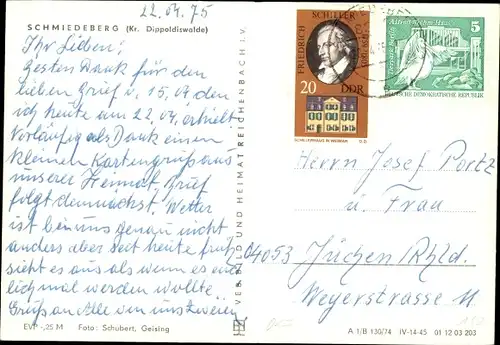 22.04.75
SCHMIEDEBERG (Kr. Dippoldiswalde)
Ihr Lieben;
Besten Dank für den
lieben Brief v. 15.04. den
ich heute am 22.04. erhielt
Vorläufig als Dank einen
kleinen Kartengruß aus
unserer Heimat, Brief
folgt demnächst. Wetter
ist bei uns genau nicht
anders aber seit heute früh
sieht es aus als wenn es end
lich mal werden wollte.
Gruß an Alle von uns Zweien
EVP -,25 M Foto: Schubert, Geising
VERLAG BILD UND HEIMAT REICHENBACH I. V.
FRIEDRICH SCHILLER
20 DDR
SCHILLERHAUS IN WEIMAR
5
DEUTSCHE DEMOKRATISCHE REPUBLIK
Herrn Josef Portz
u. Frau
04053 Jüchen Rhld.
Weyerstrasse 11
A 1/B 130/74 IV-14-45 01 12 03 203